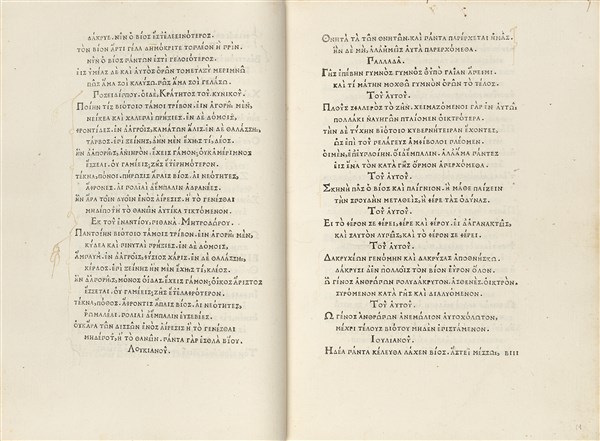 ΔΑΚΡΥΕ. ΝΥΝ Ὁ ΒΙΟΣ ἘΣΤ' ἘΛΕΕΙΝΟΤΕΡΟΣ.
ΤΟΝ ΒΙΟΝ ἌΡΤΙ ΓΕΛΑ ΔΗΜΟΚΡΙΤΕ ΤΟ ΠΛΕΟΝ Ἢ ΠΡΙΝ.
ΝΥΝ Ὁ ΒΙΟΣ ΠΑΝΤΩΝ ἘΣΤΙ ΓΕΛΟΙΟΤΕΡΟΣ.
ΕἸΣ ὙΜΕΑΣ ΔΕ ΚΑΙ ΑΥΤΟΣ ὉΡΩΝ ΤΟ ΜΕΤΑΞΥ ΜΕΡΙΜΝΩ
ΠΩΣ ἍΜΑ ΣΟΙ ΚΛΑΥΣΩ, ΠΩΣ ἍΜΑ ΣΟΙ ΓΕΛΑΣΩ.
ΠΟΣΕΙΔΙΠΠΟΥ. ΟἹ ΔΕ, ΚΡΑΤΗΤΟΣ ΤΟΥ ΚΥΝΙΚΟΥ.
ΠΟΙΗΝ ΤΙΣ ΒΙΟΤΟΙΟ ΤΑΜΟΙ ΤΡΙΒΟΝ. ἘΙΝ ἈΓΟΡΗ ΜΕΝ,
ΝΕΙΚΕΑ ΚΑΙ ΧΑΛΕΠΑΙ ΠΡΗΞΙΕΣ. ἘΝ ΔΕ ΔΟΜΟΙΣ,
ΦΡΟΝΤΙΔΕΣ. ἘΝ Δ' ἈΓΡΟΙΣ, ΚΑΜΑΤΩΝ ἍΛΙΣ. ἘΝ ΔΕ ΘΑΛΑΣΣΗ,
ΤΑΡΒΟΣ. ἘΠΙ ΞΕΙΝΗΣ Δ' ΗΝ ΜΕΝ ἜΧΗΣ ΤΙ, ΔΕΟΣ.
ΗΝ Δ' ἈΠΟΡΗΣ, ἈΝΙΗΡΟΝ. ἜΧΕΙΣ ΓΑΜΟΝ; ΟΥΚ ἈΜΕΡΙΜΝΟΣ
ἜΣΣΕΑΙ. ΟΥ ΓΑΜΕΕΙΣ; ΖΗΣ ἘΤ' ἘΡΗΜΟΤΕΡΟΝ.
ΤΕΚΝΑ, ΠΟΝΟΙ. ΠΗΡΩΣΙΣ ἌΠΑΙΣ ΒΙΟΣ. ΑἹ ΝΕΟΤΗΤΕΣ,
ἌΦΡΟΝΕΣ. ΑἹ ΠΟΛΙΑΙ Δ' ἘΜΠΑΛΙΝ ἈΔΡΑΝΕΕΣ.
ΗΝ ἌΡΑ ΤΟΙΝ ΔΥΟΙΝ ἙΝΟΣ ἈΙΡΕΣΙΣ. Ἢ ΤΟ ΓΕΝΕΣΘΑΙ
ΜΗΔΕΠΟΤ' Ἢ ΤΟ ΘΑΝΕΙΝ ΑΥΤΙΚΑ ΤΙΚΤΟΜΕΝΟΝ.
ἘΚ ΤΟΥ ἘΝΑΝΤΙΟΥ, ΠΙΘΑΝΑ ΜΗΤΡΟΔΩΡΟΥ.
ΠΑΝΤΟΙΗΝ ΒΙΟΤΟΙΟ ΤΑΜΟΙΣ ΤΡΙΒΟΝ. ἘΙΝ ἈΓΟΡΗ ΜΕΝ,
ΚΥΔΕΑ ΚΑΙ ΠΙΝΥΤΑΙ ΠΡΗΞΙΕΣ. ἘΝ ΔΕ ΔΟΜΟΙΣ,
ἌΜΠΑΥΜ'. ἘΝ Δ' ἈΓΡΟΙΣ, ΦΥΣΙΟΣ ΧΑΡΙΣ. ἘΝ ΔΕ ΘΑΛΑΣΣΗ,
ΚΕΡΔΟΣ. ἘΠΙ ΞΕΙΝΗΣ ΗΝ ΜΕΝ ἜΧΗΣ ΤΙ, ΚΛΕΟΣ.
ΗΝ Δ' ἈΠΟΡΗΣ, ΜΟΝΟΣ ΟΙΔΑΣ. ἜΧΕΙΣ ΓΑΜΟΝ; ΟΙΚΟΣ ἌΡΙΣΤΟΣ
ἜΣΣΕΤΑΙ. ΟΥ ΓΑΜΕΕΙΣ; ΖΗΣ ἘΤ' ἘΛΑΦΡΟΤΕΡΟΝ.
ΤΕΚΝΑ, ΠΟΘΟΣ. ἌΦΡΟΝΤΙΣ ἌΠΑΙΣ ΒΙΟΣ. ΑἹ ΝΕΟΤΗΤΕΣ,
ΡΩΜΑΛΕΑΙ. ΠΟΛΙΑΙ Δ' ἘΜΠΑΛΙΝ ΕΥΣΕΒΕΕΣ.
ΟΥΚ ἌΡΑ ΤΩΝ ΔΙΣΣΩΝ ἙΝΟΣ ἈΙΡΕΣΙΣ Ἢ ΤΟ ΓΕΝΕΣΘΑΙ
ΜΗΔΕΠΟΤ', Ἢ ΤΟ ΘΑΝΕΙΝ. ΠΑΝΤΑ ΓΑΡ ἘΣΘΛΑ ΒΙΟΥ.
ΛΟΥΚΙΑΝΟΥ.
ΘΝΗΤΑ ΤΑ ΤΩΝ ΘΝΗΤΩΝ. ΚΑΙ ΠΑΝΤΑ ΠΑΡΕΡΧΕΤΑΙ ἩΜΑΣ.
ΗΝ ΔΕ ΜΗ, ἈΛΛ' ἩΜΕΙΣ ΑΥΤΑ ΠΑΡΕΡΧΟΜΕΘΑ.
ΠΑΛΛΑΔΑ.
ΓΗΣ ἘΠΕΒΗΝ ΓΥΜΝΟΣ ΓΥΜΝΟΣ Θ' ὙΠΟ ΓΑΙΑΝ ἈΠΕΙΜΙ.
ΚΑΙ ΤΙ ΜΑΤΗΝ ΜΟΧΘΩ ΓΥΜΝΟΝ ὉΡΩΝ ΤΟ ΤΕΛΟΣ.
ΤΟΥ ΑΥΤΟΥ.
ΠΛΟΥΣ ΣΦΑΛΕΡΟΣ ΤΟ ΖΗΝ. ΧΕΙΜΑΖΟΜΕΝΟΙ ΓΑΡ ἘΝ ΑΥΤΩ
ΠΟΛΛΑΚΙ ΝΑΥΗΓΩΝ ΠΤΑΙΟΜΕΝ ΟΙΚΤΡΟΤΕΡΑ.
ΤΗΝ ΔΕ ΤΥΧΗΝ ΒΙΟΤΟΙΟ ΚΥΒΕΡΝΗΤΕΙΡΑΝ ἜΧΟΝΤΕΣ,
ὩΣ ἘΠΙ ΤΟΥ ΠΕΛΑΓΕΥΣ ἈΜΦΙΒΟΛΟΙ ΠΛΕΟΜΕΝ.
ΟἹ ΜΕΝ, ἘΠ' ΕΥΠΛΟΙΗΝ. ΟἹ Δ' ἘΜΠΑΛΙΝ. ἈΛΛ' ἍΜΑ ΠΑΝΤΕΣ
ΕἸΣ ἙΝΑ ΤΟΝ ΚΑΤΑ ΓΗΣ ὉΡΜΟΝ ἈΠΕΡΧΟΜΕΘΑ.
ΤΟΥ ΑΥΤΟΥ.
ΣΚΗΝΗ ΠΑΣ Ὁ ΒΙΟΣ ΚΑΙ ΠΑΙΓΝΙΟΝ. Ἢ ΜΑΘΕ ΠΑΙΖΕΙΝ
ΤΗΝ ΣΠΟΥΔΗΝ ΜΕΤΑΘΕΙΣ, Ἢ ΦΕΡΕ ΤΑΣ ὈΔΥΝΑΣ.
ΤΟΥ ΑΥΤΟΥ.
ΕἸ ΤΟ ΦΕΡΟΝ ΣΕ ΦΕΡΕΙ, ΦΕΡΕ ΚΑΙ ΦΕΡΟΥ. ΕἸ Δ' ἈΓΑΝΑΚΤΕΙΣ,
ΚΑΙ ΣΑΥΤΟΝ ΛΥΠΕΙΣ, ΚΑΙ ΤΟ ΦΕΡΟΝ ΣΕ ΦΕΡΕΙ.
ΤΟΥ ΑΥΤΟΥ.
ΔΑΚΡΥΧΕΩΝ ΓΕΝΟΜΗΝ ΚΑΙ ΔΑΚΡΥΣΑΣ ἈΠΟΘΝΗΣΚΩ.
ΔΑΚΡΥΣΙ Δ' ἘΝ ΠΟΛΛΟΙΣ ΤΟΝ ΒΙΟΝ ΕΥΡΟΝ ὍΛΟΝ.
Ὦ ΓΕΝΟΣ ἈΝΘΡΩΠΩΝ ΠΟΛΥΔΑΚΡΥΤΟΝ. ἈΣΘΕΝΕΣ. ΟΙΚΤΡΟΝ.
ΣΥΡΟΜΕΝΟΝ ΚΑΤΑ ΓΗΣ ΚΑΙ ΔΙΑΛΥΟΜΕΝΟΝ.
ΤΟΥ ΑΥΤΟΥ.
Ὦ ΓΕΝΟΣ ἈΝΘΡΩΠΩΝ ἈΝΕΜΩΛΙΟΝ ΑΥΤΟΧΟΛΩΤΟΝ,
ΜΕΧΡΙ ΤΕΛΟΥΣ ΒΙΟΤΟΥ ΜΗΔΕΝ ἘΠΙΣΤΑΜΕΝΟΝ.
ἸΟΥΛΙΑΝΟΥ.
ἩΔΕΑ ΠΑΝΤΑ ΚΕΛΕΥΘΑ ΛΑΧΕΝ ΒΙΟΣ. ἌΣΤΕΙ ΜΕΣΣΩ, ΒΙΙΙ